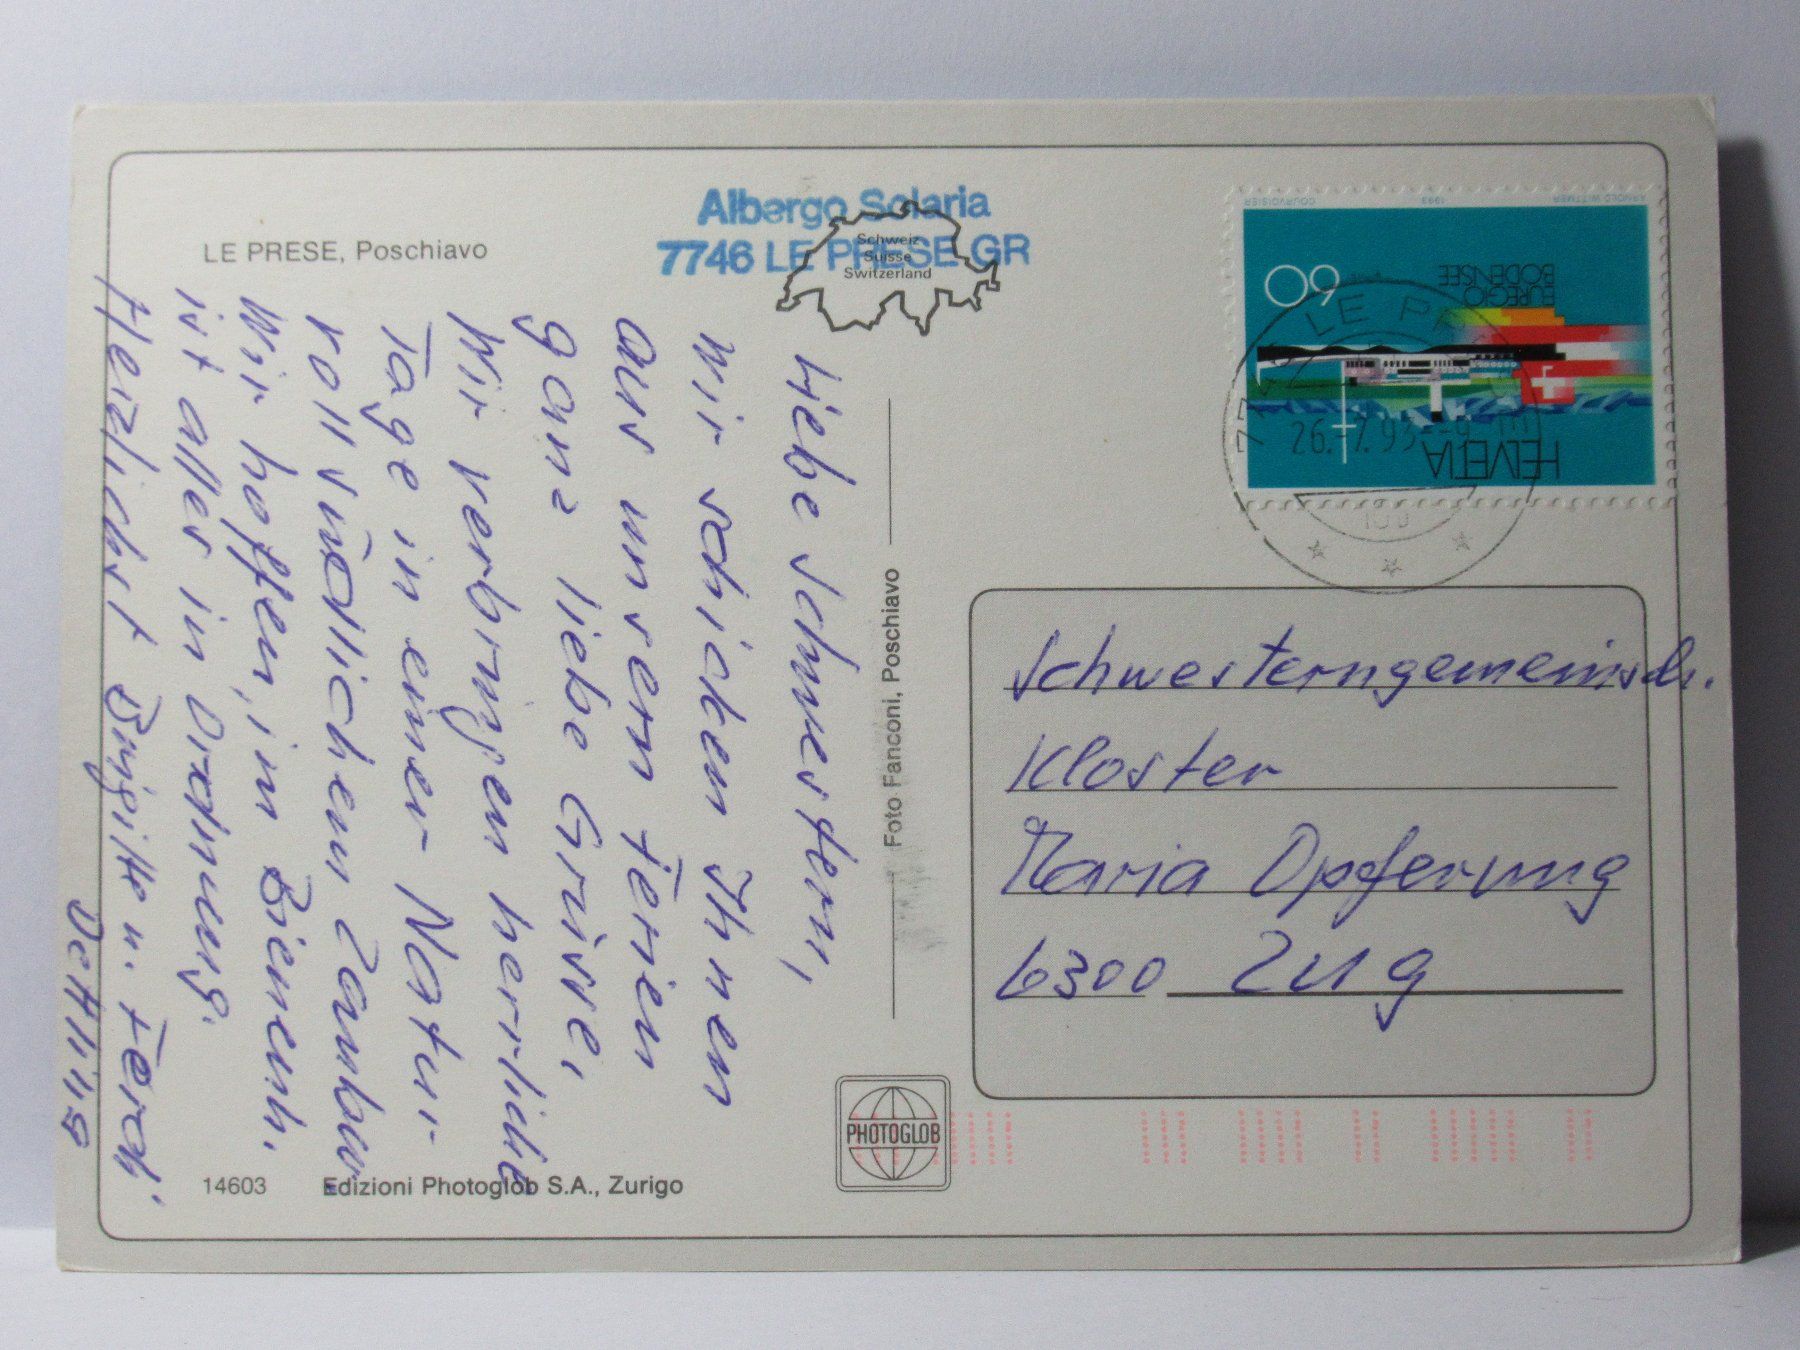 LE PRESE, Poschiavo
Albergo Solaria
7746 LE PRESE GR
Schweiz
Suisse
Switzerland
Liebe Schwestern,
Wir schicken Ihnen
aus unsern Ferien
ganz liebe Grüsse,
Wir verbringen herrliche
Tage in einer Natur
voll
Wir hoffen, im Bienenh.
ist alles in Ordnung.
Herzlichst Brigitte u. Ferd.
Foto Fanconi, Poschiavo
14603
Edizioni Photoglob S.A., Zurigo
PHOTOGLOB
COURVOISIER
1993
ARNOLD WITTMER
60
EUREGIO
BODENSEE
HELVETIA
7746 LE PRESE
26.-7.93-9
Schwesterngemeinsch.
Kloster
Maria Opferung
6300 Zug